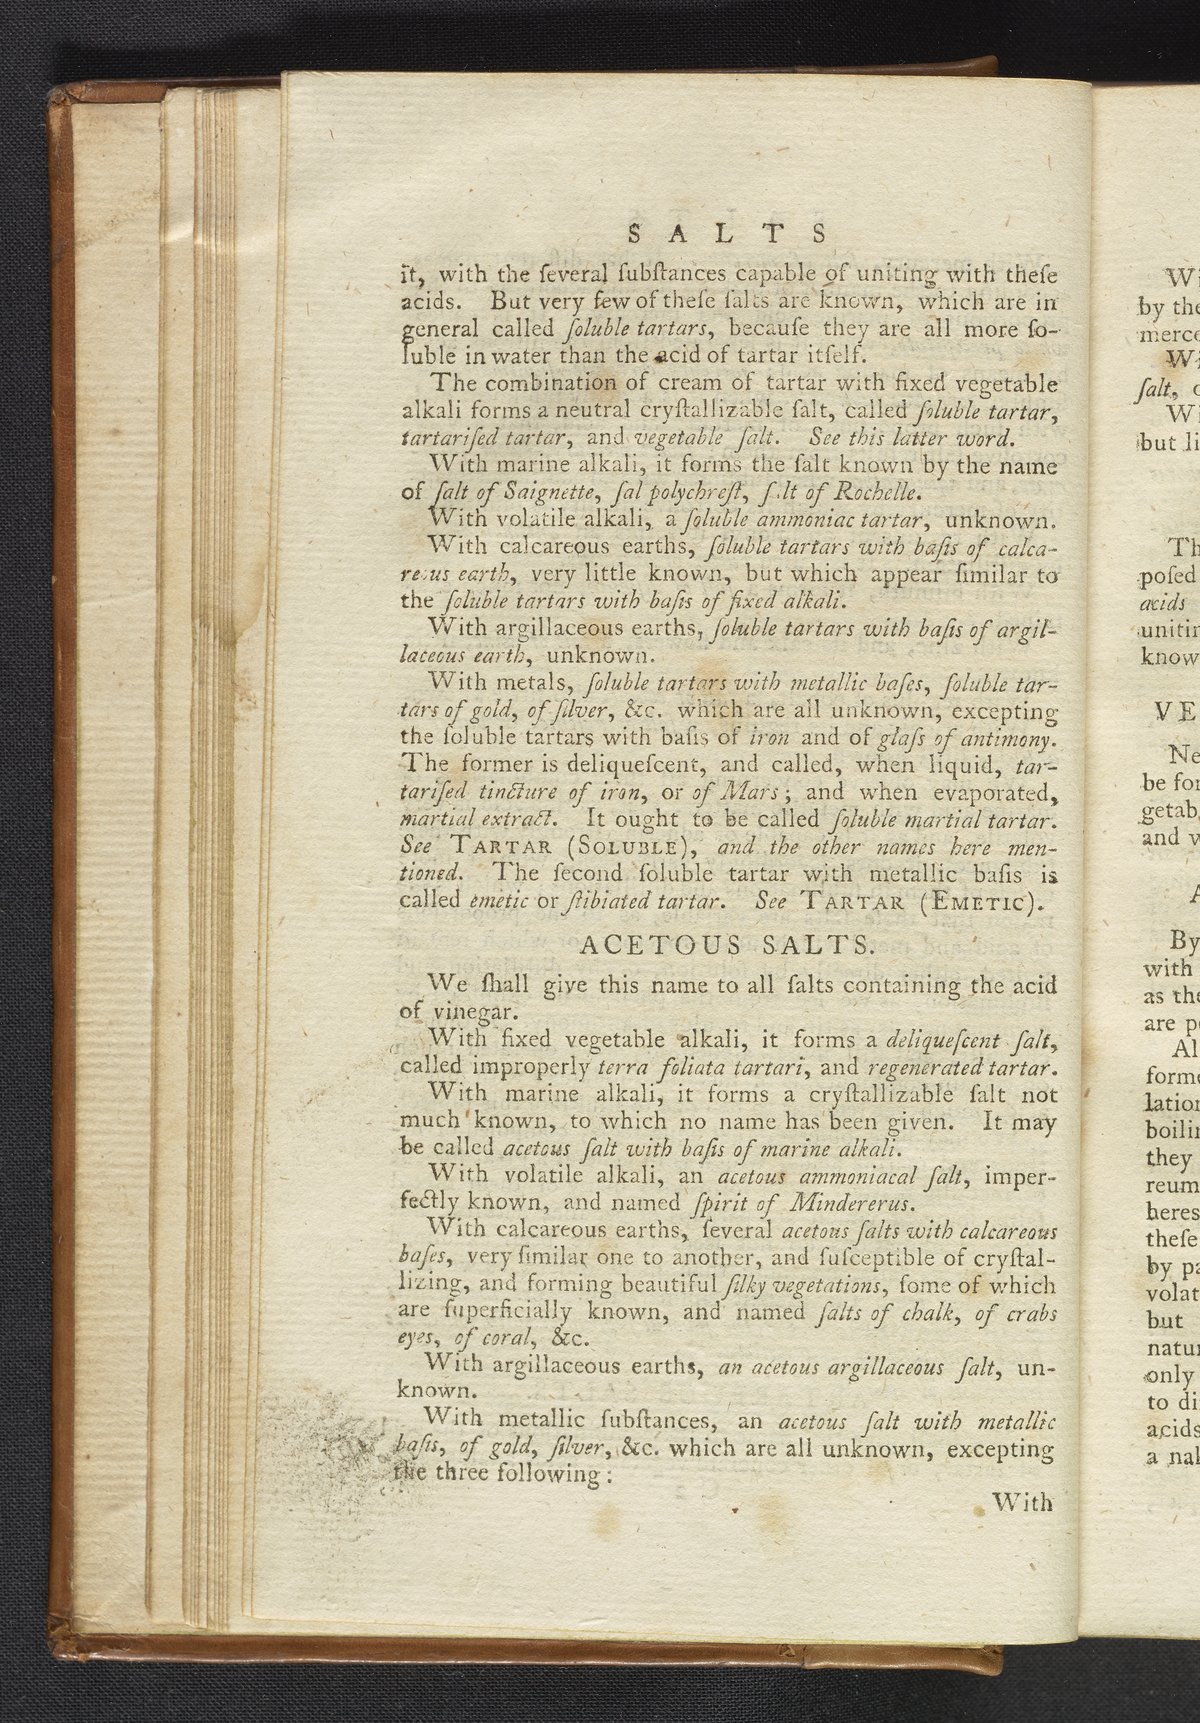 SALTS
it, with the ſeveral ſubſtances capable of uniting with theſe
acids. But very few of theſe ſalts are known, which are in
general called ſoluble tartars, becauſe they are all more ſo-
luble in water than the acid of tartar itſelf.
The combination of cream of tartar with fixed vegetable
alkali forms a neutral cryſtallizable ſalt, called ſoluble tartar,
tartariſed tartar, and vegetable ſalt. See this latter word.
With marine alkali, it forms the ſalt known by the name
of ſalt of Saignette, ſal polychreſt, ſalt of Rochelle.
With volatile alkali, a ſoluble ammoniac tartar, unknown.
With calcareous earths, ſoluble tartars with baſis of calca-
reous earth, very little known, but which appear ſimilar to
the ſoluble tartars with baſis of fixed alkali.
With argillaceous earths, ſoluble tartars with baſis of argil-
laceous earth, unknown.
With metals, ſoluble tartars with metallic baſes, ſoluble tar-
tars of gold, of ſilver, &c. which are all unknown, excepting
the ſoluble tartars with baſis of iron and of glaſs of antimony.
The former is deliqueſcent, and called, when liquid, tar-
tariſed tincture of iron, or of Mars; and when evaporated,
martial extract. It ought to be called ſoluble martial tartar.
See TARTAR (SOLUBLE), and the other names here men-
tioned. The ſecond ſoluble tartar with metallic baſis is
called emetic or ſtibiated tartar. See TARTAR (EMETIC).
ACETOUS SALTS.
We ſhall give this name to all ſalts containing the acid
of vinegar.
With fixed vegetable alkali, it forms a deliqueſcent ſalt,
called improperly terra foliata tartari, and regenerated tartar.
With marine alkali, it forms a cryſtallizable ſalt not
much known, to which no name has been given. It may
be called acetous ſalt with baſis of marine alkali.
With volatile alkali, an acetous ammoniacal ſalt, imper-
fectly known, and named ſpirit of Mindererus.
With calcareous earths, ſeveral acetous ſalts with calcareous
baſes, very ſimilar one to another, and ſuſceptible of cryſtal-
lizing, and forming beautiful ſilky vegetations, ſome of which
are ſuperficially known, and named ſalts of chalk, of crabs
eyes, of coral, &c.
With argillaceous earths, an acetous argillaceous ſalt, un-
known.
With metallic ſubſtances, an acetous ſalt with metallic
baſis, of gold, ſilver, &c. which are all unknown, excepting
the three following:
With
by the
ſalt,
but
poſed
acids
know
be
and
By
with
as the
are
they
theſe
by
but
only
to
acids
a